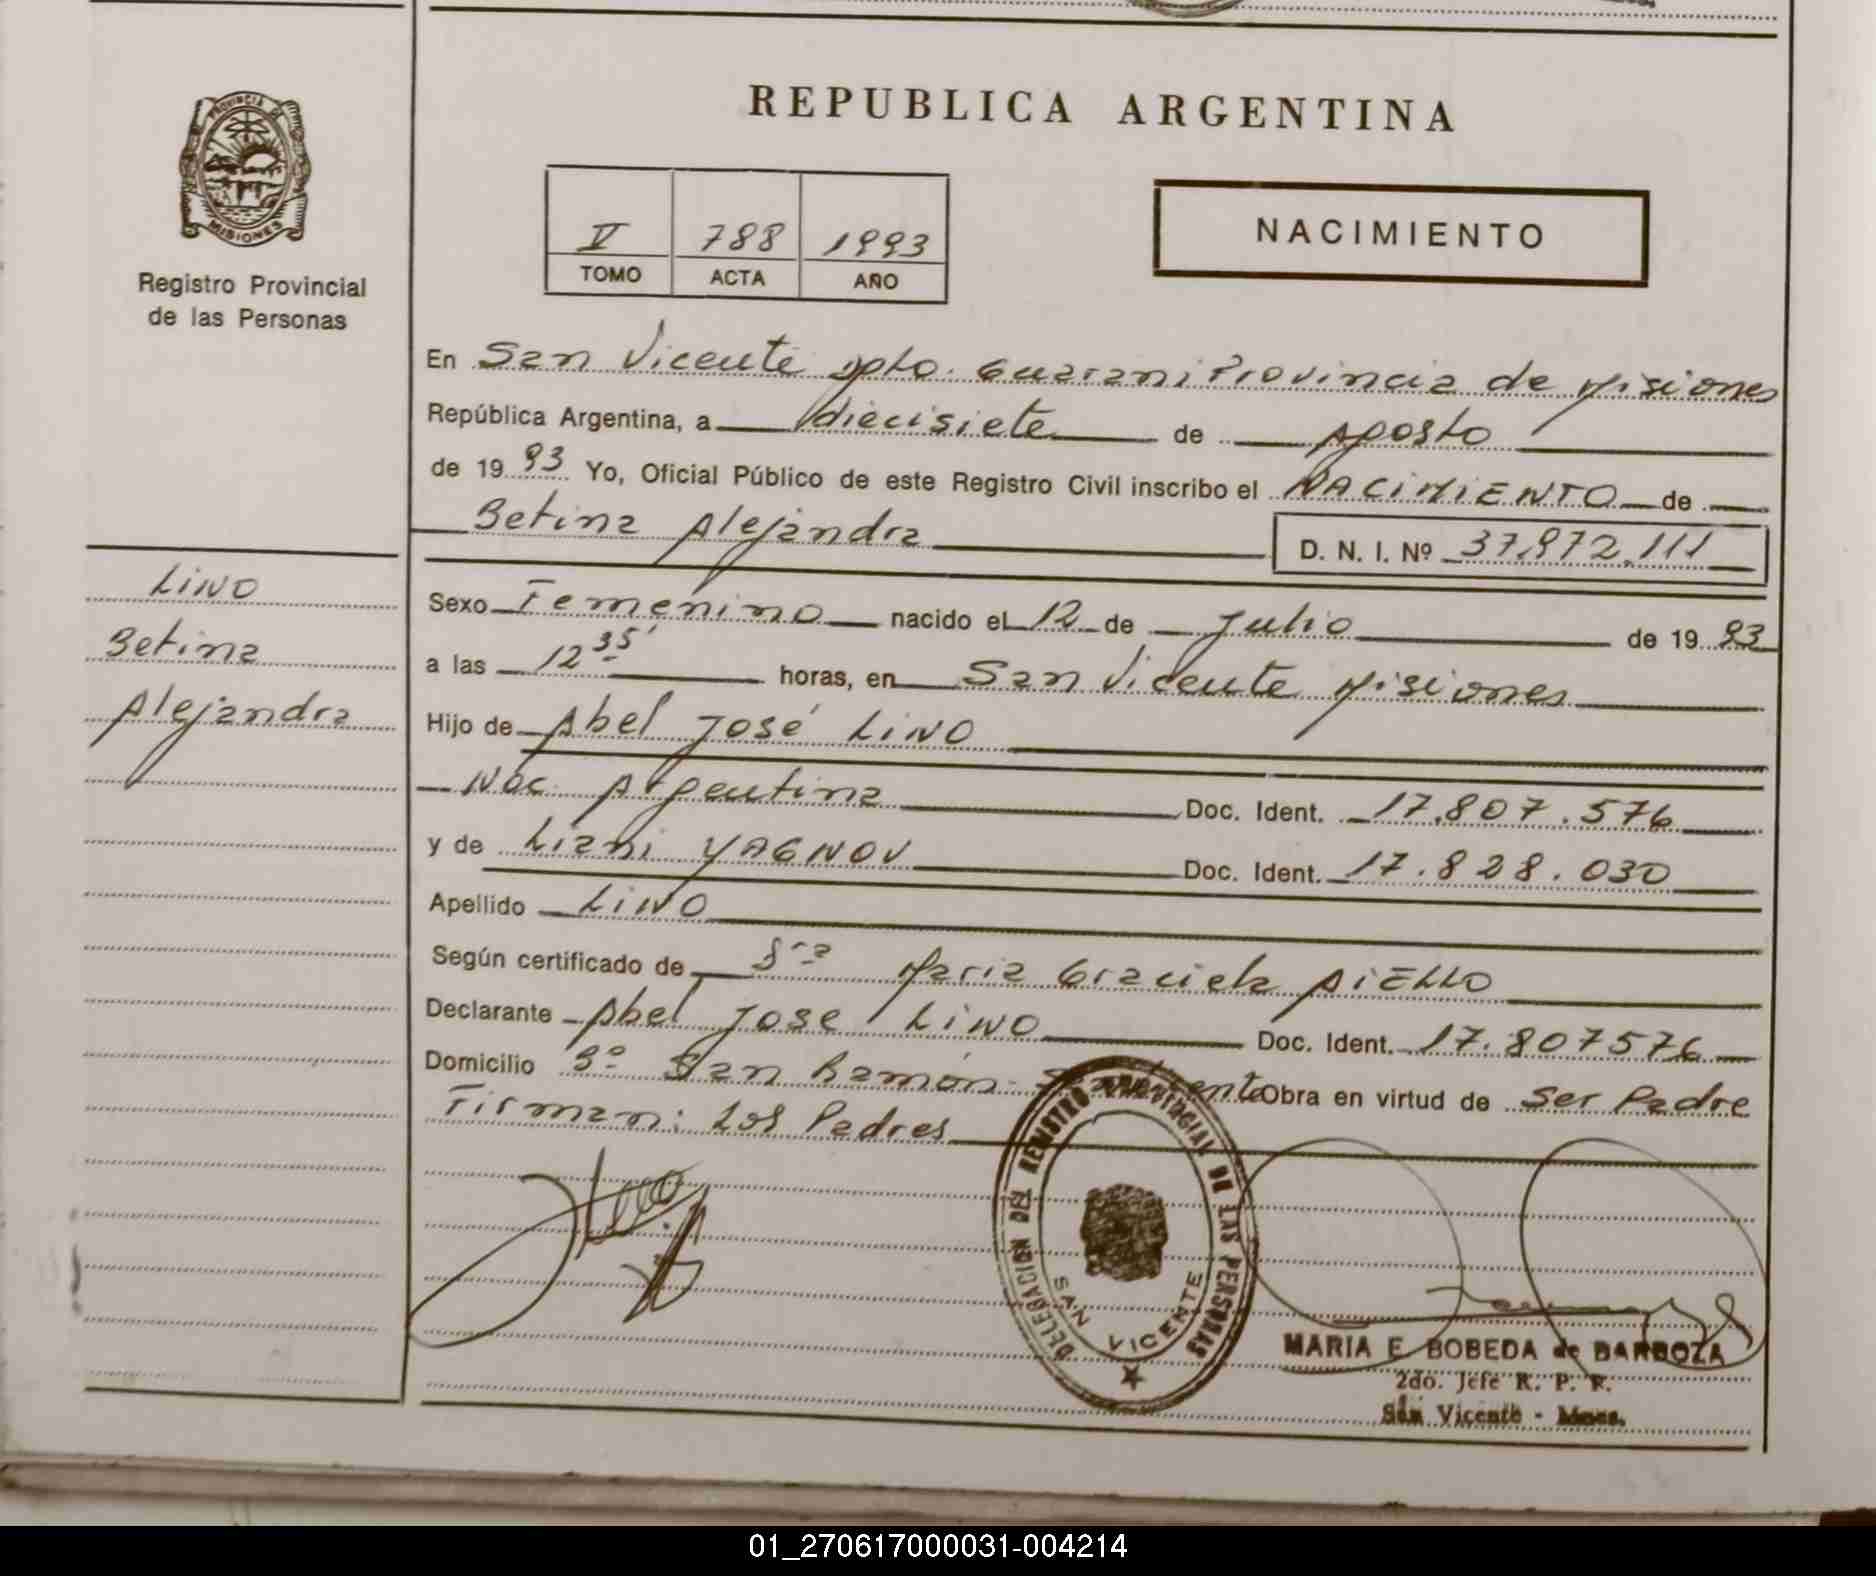 REPUBLICA ARGENTINA
PROVINCIA DE
MISIONES
Registro Provincial
de las Personas
V 788 1993
TOMO ACTA AÑO
NACIMIENTO
En San Vicente Dpto. Guarani Provincia de Misiones
República Argentina, a diecisiete de Agosto
de 1993 Yo, Oficial Público de este Registro Civil inscribo el NACIMIENTO de
Betina Alejandra D. N. I. Nº 37.972.111
LINO
Betina
Alejandra
Sexo Femenino nacido el 12 de Julio de 1993
a las 12 35' horas, en San Vicente Misiones
Hijo de Abel José LINO
Nac. Argentina Doc. Ident. 17.807.576
y de Liani YAGNOV Doc. Ident. 17.828.030
Apellido LINO
Según certificado de Maria Graciela AIELLO
Declarante Abel Jose LINO Doc. Ident. 17.807576
Domicilio Bº San Ramón - San Vicente Obra en virtud de Ser Padre
Firman: Los Padres
DELEGACION DEL REGISTRO PROVINCIAL DE LAS PERSONAS
SAN VICENTE
MARIA E. BOBEDA de BARBOZA
2do. Jefe R. P. P.
San Vicente - Mnes.
01_270617000031-004214